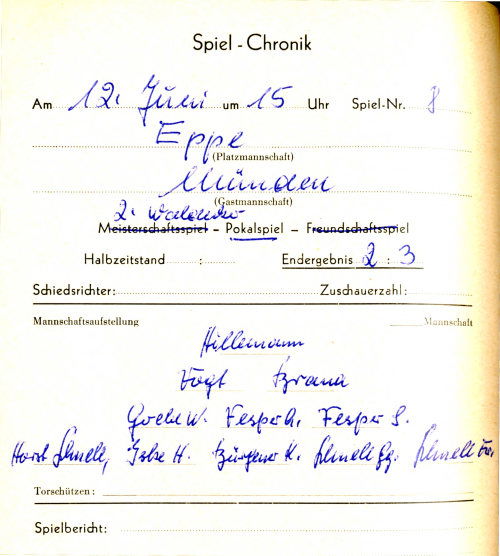 Spiel - Chronik
Am 12. Juni um 15 Uhr Spiel-Nr. 8
Eppe
(Platzmannschaft)
Münden
(Gastmannschaft)
2.
Meisterschaftsspiel – Pokalspiel – Freundschaftsspiel
Halbzeitstand : Endergebnis 2 : 3
Schiedsrichter: Zuschauerzahl:
Mannschaftsaufstellung Mannschaft
Hillemann
Vogt
W. Fesper Fesper S.
Horst Schnell, H. K. Schnell
Torschützen:
Spielbericht: